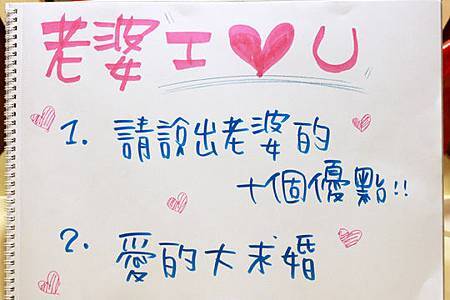 老婆 I ♥ U
1. 請說出老婆的
十個優點!!
2. 愛的大求婚